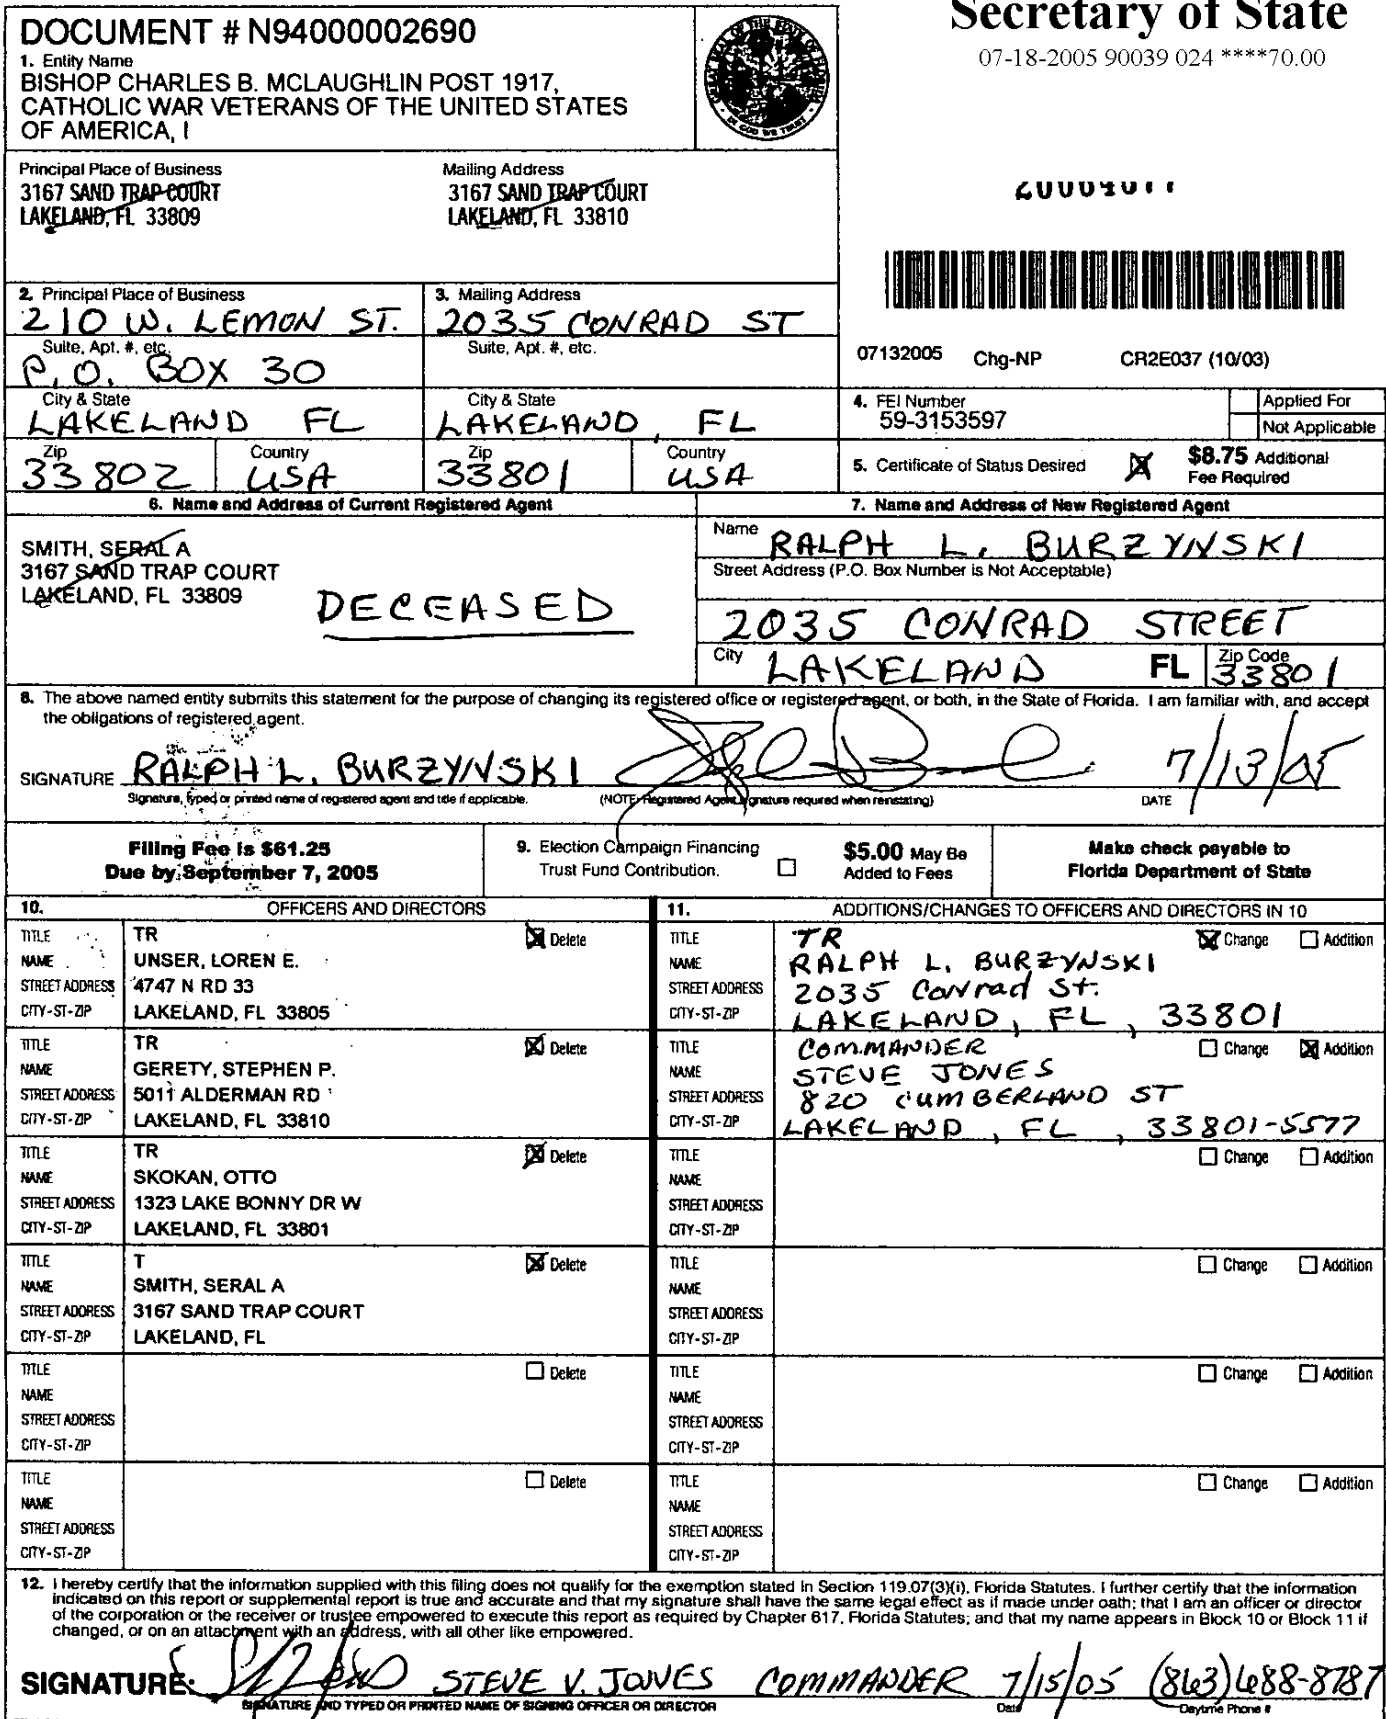 Secretary of State
07-18-2005 90039 024 ****70.00
DOCUMENT # N94000002690
1. Entity Name
BISHOP CHARLES B. MCLAUGHLIN POST 1917,
CATHOLIC WAR VETERANS OF THE UNITED STATES
OF AMERICA, I
Principal Place of Business
3167 SAND TRAP COURT
LAKELAND, FL 33809
Mailing Address
3167 SAND TRAP COURT
LAKELAND, FL 33810
2. Principal Place of Business
210 W. LEMON ST.
Suite, Apt. #, etc.
P.O. BOX 30
City & State
LAKELAND FL
Zip
33802
Country
USA
3. Mailing Address
2035 CONRAD ST
Suite, Apt. #, etc.
City & State
LAKELAND, FL
Zip
33801
Country
USA
07132005 Chg-NP CR2E037 (10/03)
4. FEI Number
59-3153597
Applied For
Not Applicable
5. Certificate of Status Desired
$8.75 Additional
Fee Required
6. Name and Address of Current Registered Agent
SMITH, SERAL A
3167 SAND TRAP COURT
LAKELAND, FL 33809
DECEASED
7. Name and Address of New Registered Agent
Name
RALPH L. BURZYNSKI
Street Address (P.O. Box Number is Not Acceptable)
2035 CONRAD STREET
City LAKELAND FL Zip Code 33801
8. The above named entity submits this statement for the purpose of changing its registered office or registered agent, or both, in the State of Florida. I am familiar with, and accept
the obligations of registered agent.
SIGNATURE RALPH L. BURZYNSKI 7/13/05
Signature, typed or printed name of registered agent and title if applicable. (NOTE: Registered Agent signature required when reinstating) DATE
Filing Fee is $61.25
Due by September 7, 2005
9. Election Campaign Financing
Trust Fund Contribution.
$5.00 May Be
Added to Fees
Make check payable to
Florida Department of State
10. OFFICERS AND DIRECTORS
TITLE TR Delete
NAME UNSER, LOREN E.
STREET ADDRESS 4747 N RD 33
CITY-ST-ZIP LAKELAND, FL 33805
TITLE TR Delete
NAME GERETY, STEPHEN P.
STREET ADDRESS 5011 ALDERMAN RD
CITY-ST-ZIP LAKELAND, FL 33810
TITLE TR Delete
NAME SKOKAN, OTTO
STREET ADDRESS 1323 LAKE BONNY DR W
CITY-ST-ZIP LAKELAND, FL 33801
TITLE T Delete
NAME SMITH, SERAL A
STREET ADDRESS 3167 SAND TRAP COURT
CITY-ST-ZIP LAKELAND, FL
TITLE Delete
NAME
STREET ADDRESS
CITY-ST-ZIP
TITLE Delete
NAME
STREET ADDRESS
CITY-ST-ZIP
11. ADDITIONS/CHANGES TO OFFICERS AND DIRECTORS IN 10
TITLE TR Change Addition
NAME RALPH L. BURZYNSKI
STREET ADDRESS 2035 Conrad St.
CITY-ST-ZIP LAKELAND, FL, 33801
TITLE COMMANDER Change Addition
NAME STEVE JONES
STREET ADDRESS 820 CUMBERLAND ST
CITY-ST-ZIP LAKELAND, FL, 33801-5577
TITLE Change Addition
NAME
STREET ADDRESS
CITY-ST-ZIP
TITLE Change Addition
NAME
STREET ADDRESS
CITY-ST-ZIP
TITLE Change Addition
NAME
STREET ADDRESS
CITY-ST-ZIP
TITLE Change Addition
NAME
STREET ADDRESS
CITY-ST-ZIP
12. I hereby certify that the information supplied with this filing does not qualify for the exemption stated in Section 119.07(3)(i), Florida Statutes. I further certify that the information
indicated on this report or supplemental report is true and accurate and that my signature shall have the same legal effect as if made under oath; that I am an officer or director
of the corporation or the receiver or trustee empowered to execute this report as required by Chapter 617, Florida Statutes; and that my name appears in Block 10 or Block 11 if
changed, or on an attachment with an address, with all other like empowered.
SIGNATURE: STEVE V. JONES COMMANDER 7/15/05 (863)688-8787
SIGNATURE AND TYPED OR PRINTED NAME OF SIGNING OFFICER OR DIRECTOR Date Daytime Phone #